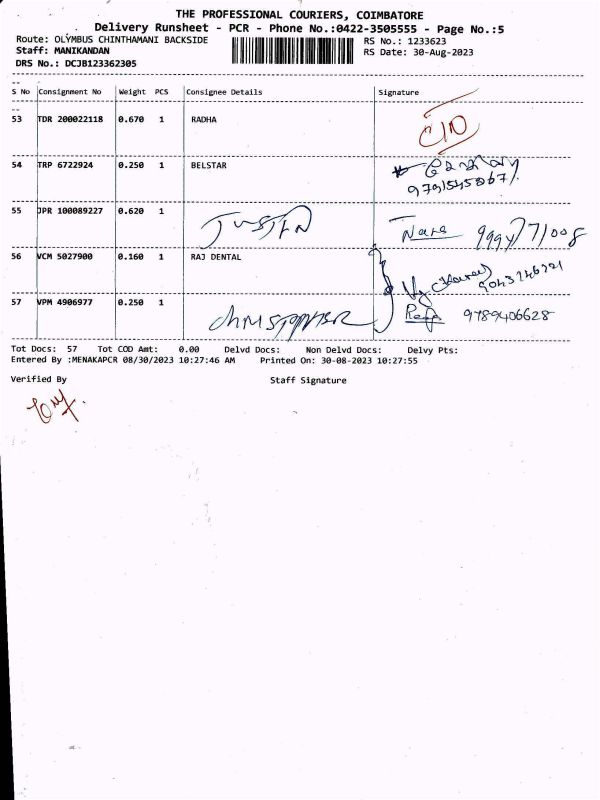 THE PROFESSIONAL COURIERS, COIMBATORE
Delivery Runsheet - PCR - Phone No.:0422-3505555 - Page No.:5
Route: OLYMBUS CHINTHAMANI BACKSIDE
RS No.: 1233623
Staff: MANIKANDAN
RS Date: 30-Aug-2023
DRS No.: DCJB123362305
S No Consignment No Weight PCS Consignee Details Signature
53 TDR 200022118 0.670 1 RADHA
54 TRP 6722924 0.250 1 BELSTAR
55 JPR 100089227 0.620 1 JUSTIN
56 VCM 5027900 0.160 1 RAJ DENTAL
57 VPM 4906977 0.250 1 CHRISTOPHER 9789406628
Tot Docs: 57 Tot COD Amt: 0.00 Delvd Docs: Non Delvd Docs: Delvy Pts:
Entered By :MENAKAPCR 08/30/2023 10:27:46 AM Printed On: 30-08-2023 10:27:55
Verified By Staff Signature